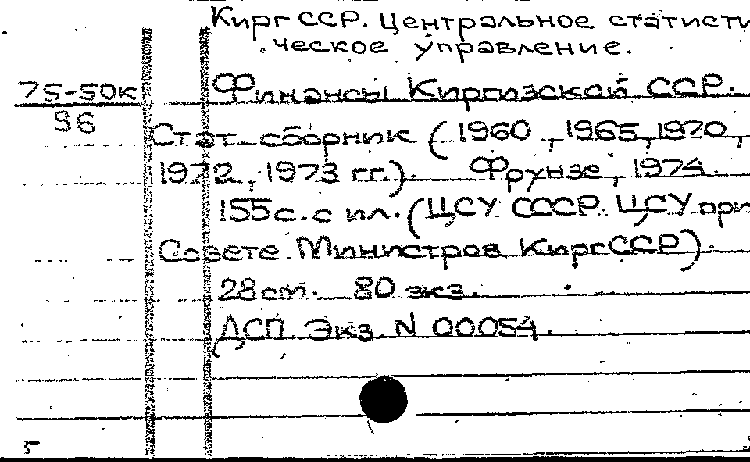 Кирг ССР. Центральное статисти
ческое управление.
75-50к Финансы Киргизской ССР.
96
Стат. сборник (1960, 1965, 1970,
1972, 1973 гг.). Фрунзе, 1974.
155с. с ил. (ЦСУ СССР. ЦСУ при
Совете Министров КиргССР).
28см. 80 экз.
ДСП. Экз. N 00054.
5